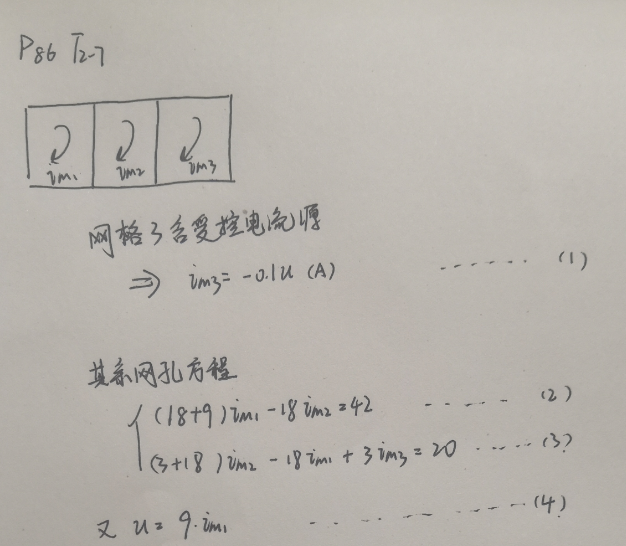 P86 T2-7
im1 im2 im3
网格3含受控电流源
⇒ im3 = -0.1u (A) ........ (1)
其余网孔方程
(18+9)im1 - 18im2 = 42 ...... (2)
(3+18)im2 - 18im1 + 3im3 = 20 ...... (3)
又 u = 9·im1 ........ (4)